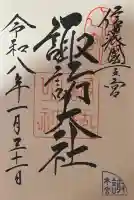 信濃國一之宮
諏訪大社
令和八年一月
本宮